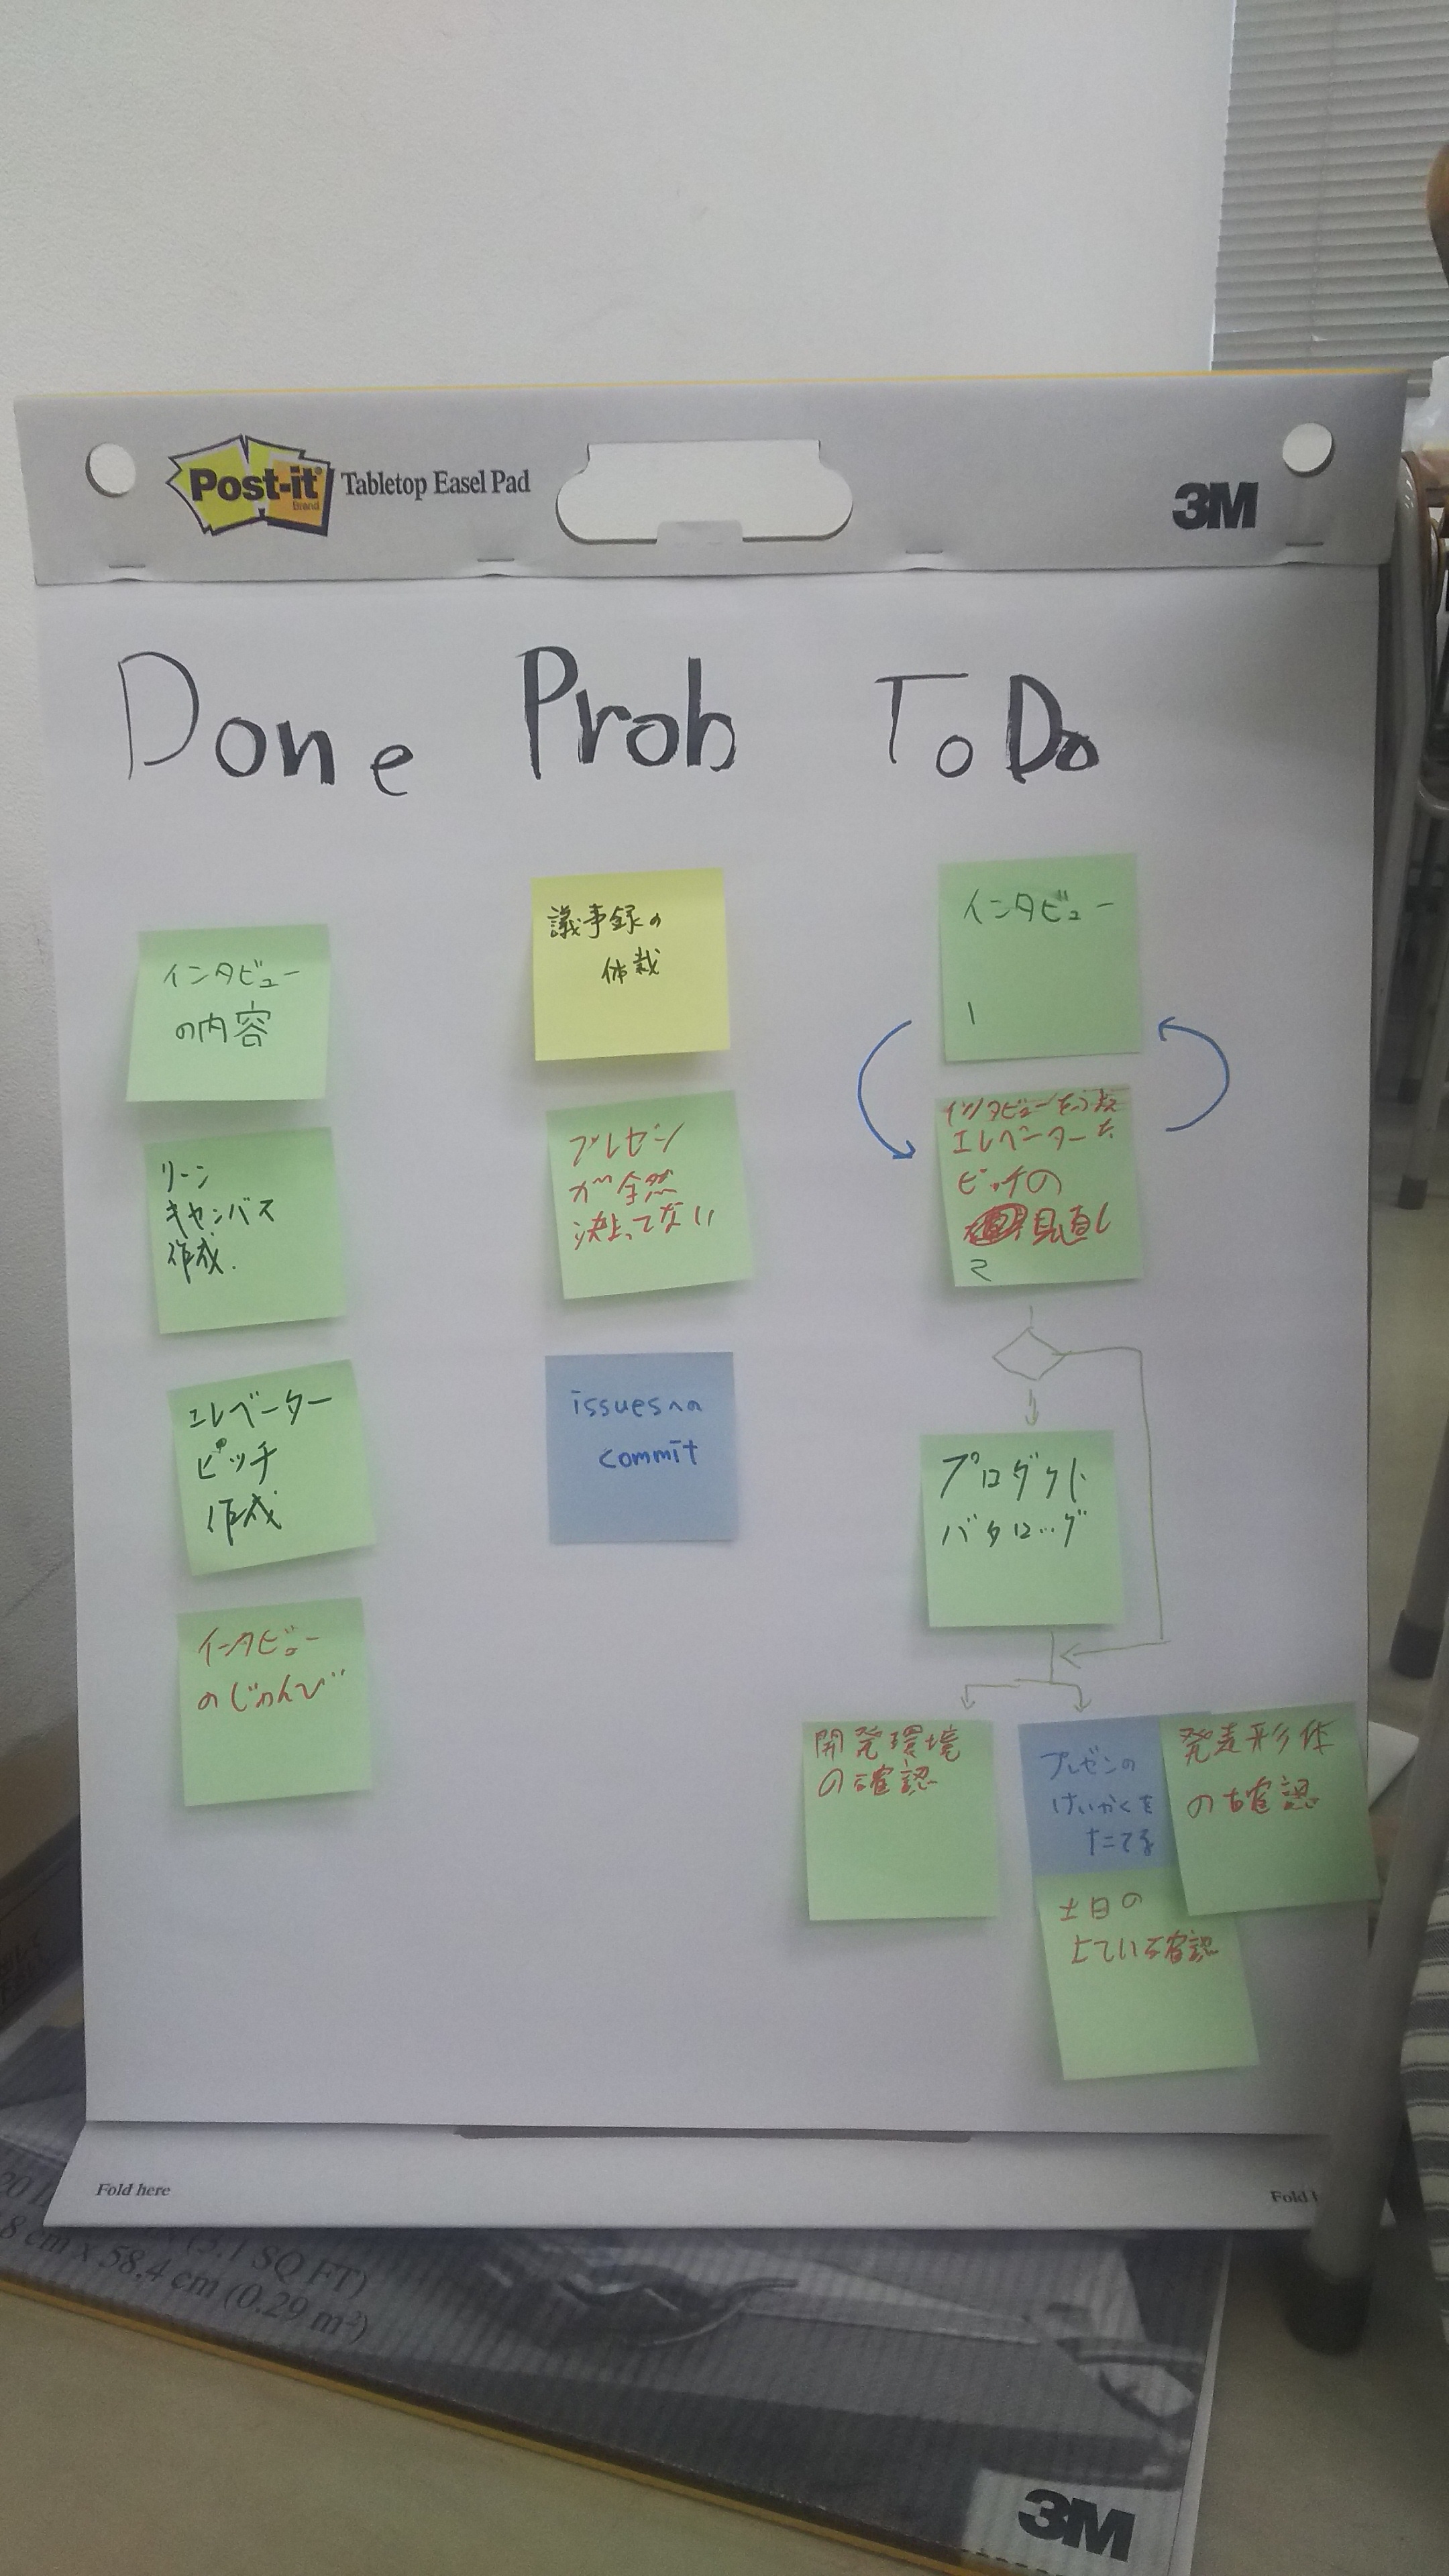 Post-it
Brand
Tabletop Easel Pad
3M
Done
Prob
ToDo
インタビュー
の内容
リーン
キャンバス
作成.
エレベーター
ピッチ
作成
インタビュー
のじゅんび
議事録の
体裁
プレゼン
が全然
決まってない
issuesへの
commit
インタビュー
1
インタビューをふまえ
エレベーター
ピッチの
見直し
2
プロダクト
バックログ
開発環境
の確認
プレゼンの
けいかくを
たてる
発表形体
の確認
土日の
よてい確認
Fold here
Fold
8 cm x 58.4 cm (0.29 m²)
(3.1 SQ FT)
3M